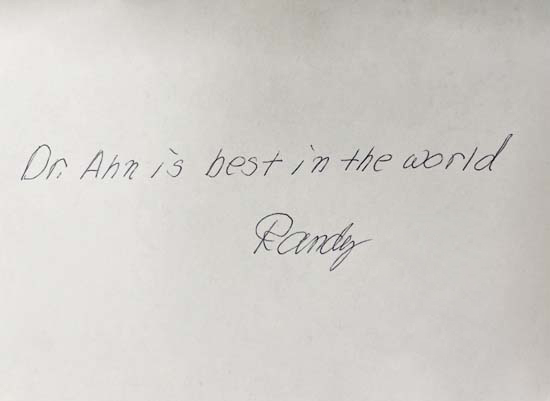 Dr. Ahn is best in the world
Randy